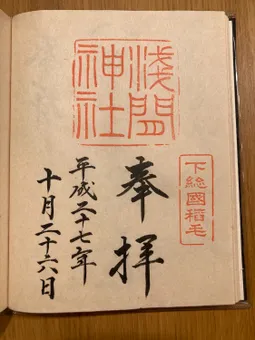 浅間神社
下総國稲毛
奉拝
平成二十七年
十月二十六日